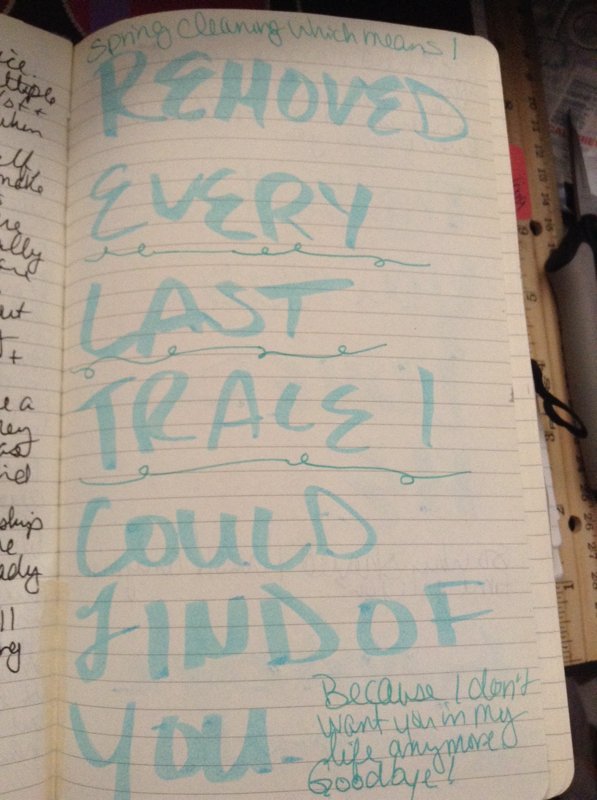 when
make
Spring cleaning which means I
REMOVED
EVERY
LAST
TRACE I
COULD
FIND OF
YOU.
Because I don't
want you in my
life anymore
Goodbye!